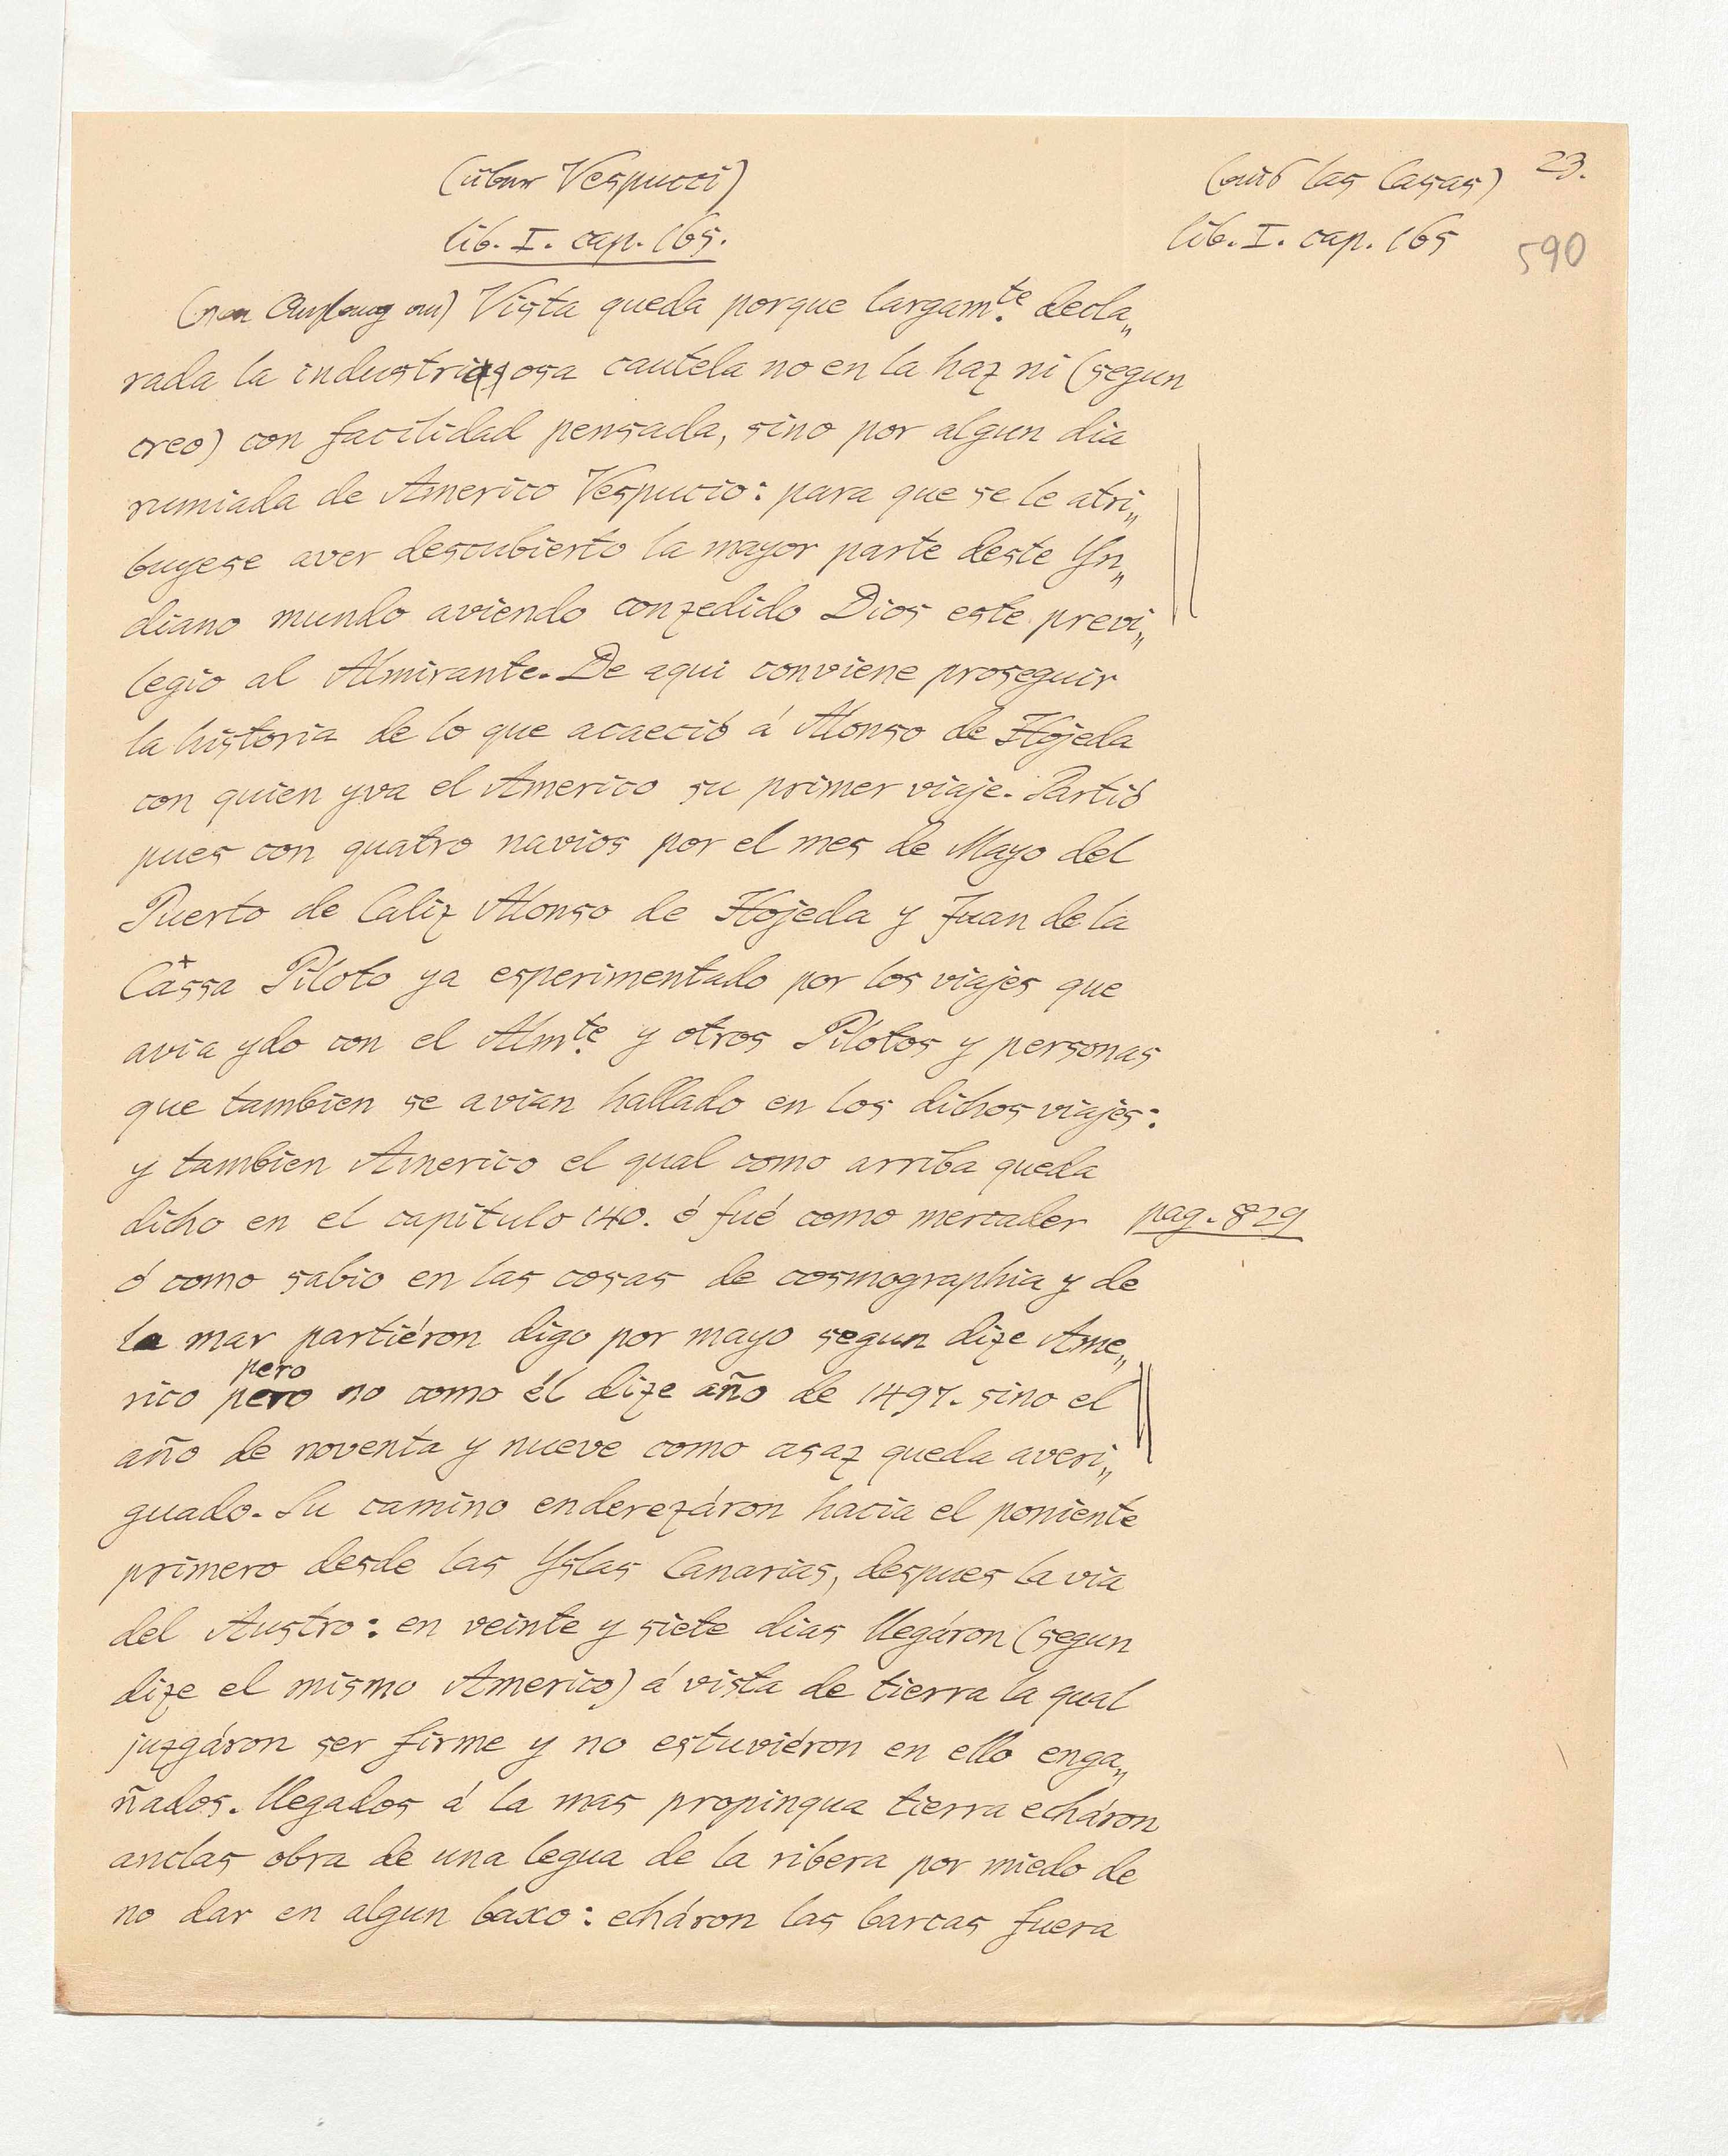 (über Vespucci)
(aus las Casas) 23.
lib. I. cap. 165.
lib. I. cap. 165
590
(von Anfang an) Vista queda porque largam.te decla„
rada la industriosa cautela no en la haz ni (segun
creo) con facilidad pensada, sino por algun dia
rumiada de Americo Vespucio: para que se le atri„
buyese aver descubierto la mayor parte deste Yn„
diano mundo aviendo conzedido Dios este previ„
legio al Almirante. De aqui conviene proseguir
la historia de lo que acaeció á Alonso de Hojeda
con quien yva el Americo su primer viaje. Partió
pues con quatro navios por el mes de Mayo del
Puerto de Caliz Alonso de Hojeda y Juan de la
Cassa Piloto ya esperimentado por los viajes que
avia ydo con el Alm.te y otros Pilotos y personas
que tambien se avian hallado en los dichos viajes:
y tambien Americo el qual como arriba queda
dicho en el capitulo 140. ó fué como mercader pag. 829
ó como sabio en las cosas de cosmographia y de
la mar partiéron digo por mayo segun dize Ame„
pero
rico pero no como él dize año de 1497. sino el
año de noventa y nueve como asaz queda averi„
guado. Su camino enderezáron hacia el poniente
primero desde las Yslas Canarias, despues la via
del Austro: en veinte y siete dias llegáron (segun
dize el mismo Americo) á vista de tierra la qual
juzgáron ser firme y no estuviéron en ello enga„
ñados. llegados á la mas propinqua tierra echáron
anclas obra de una legua de la ribera por miedo de
no dar en algun baxo: echáron las barcas fuera